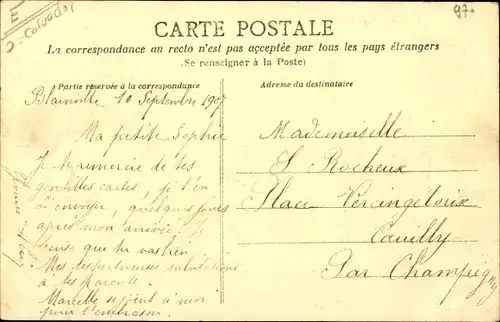 D-Calvados
970
CARTE POSTALE
La correspondance au recto n'est pas acceptée par tous les pays étrangers
(Se renseigner à la Poste)
Partie réservée à la correspondance
Adresse du destinataire
Blainville 10 Septembre 1907
Ma petite Sophie
Je te remercie de tes
gentilles cartes, je t'en
ai envoyer, quelques jours
après mon arrivée. Je
pense que tu vas bien
Mes respectueuses salutations
à tes parents.
Marcelle se joint à moi
pour t'embrasser.
Mademoiselle
S. Rocheux
Place Vercingétorix
Couilly
Par Champigny